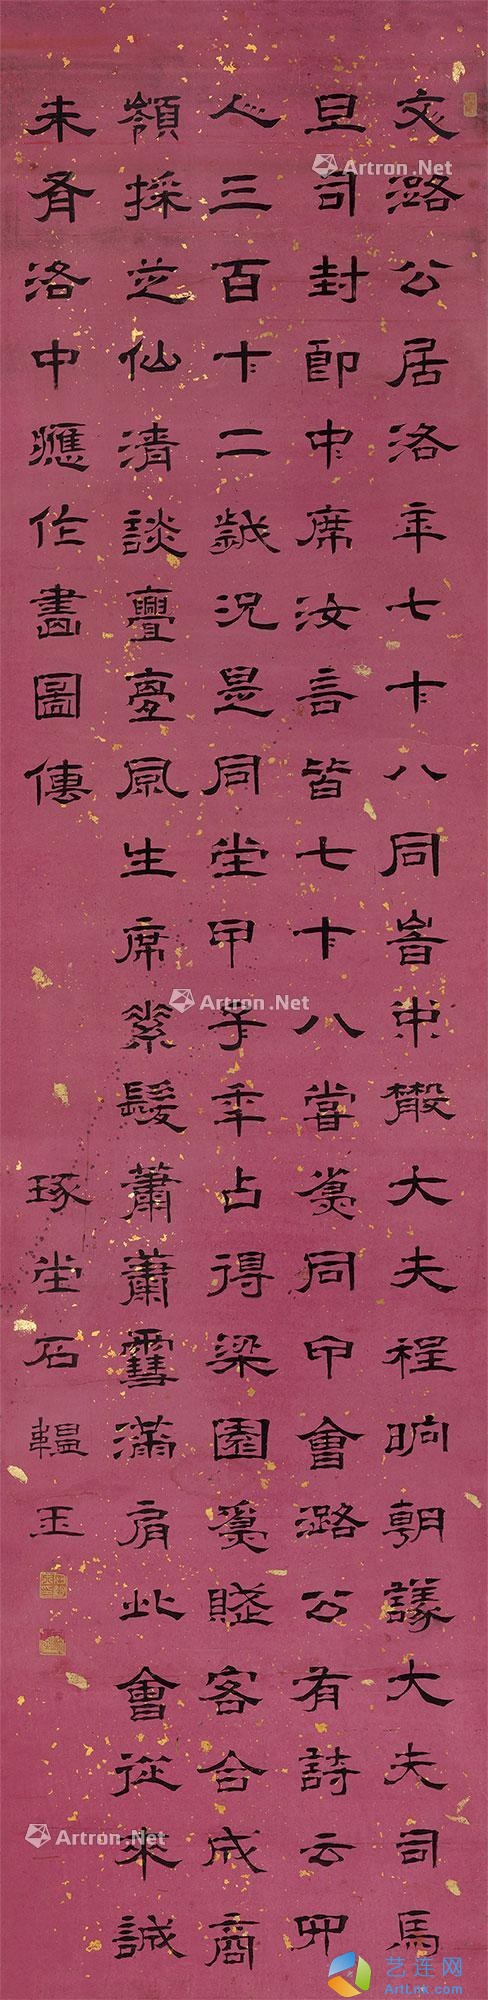 文潞公居洛年七十八同時中散大夫程晌朝議大夫司馬
旦司封郎中席汝言皆七十八嘗為同甲會潞公有詩云四
人三百十二歲況是同堂甲子年占得梁園為賤客合成商
嶺採芝仙清談亹亹風生席素髮蕭蕭雪滿肩此會從來誠
未有洛中應作畫圖傳
琢堂石韞玉
Artron.Net
Artron.Net
Artron.Net
艺连网
ArtLnk.Com